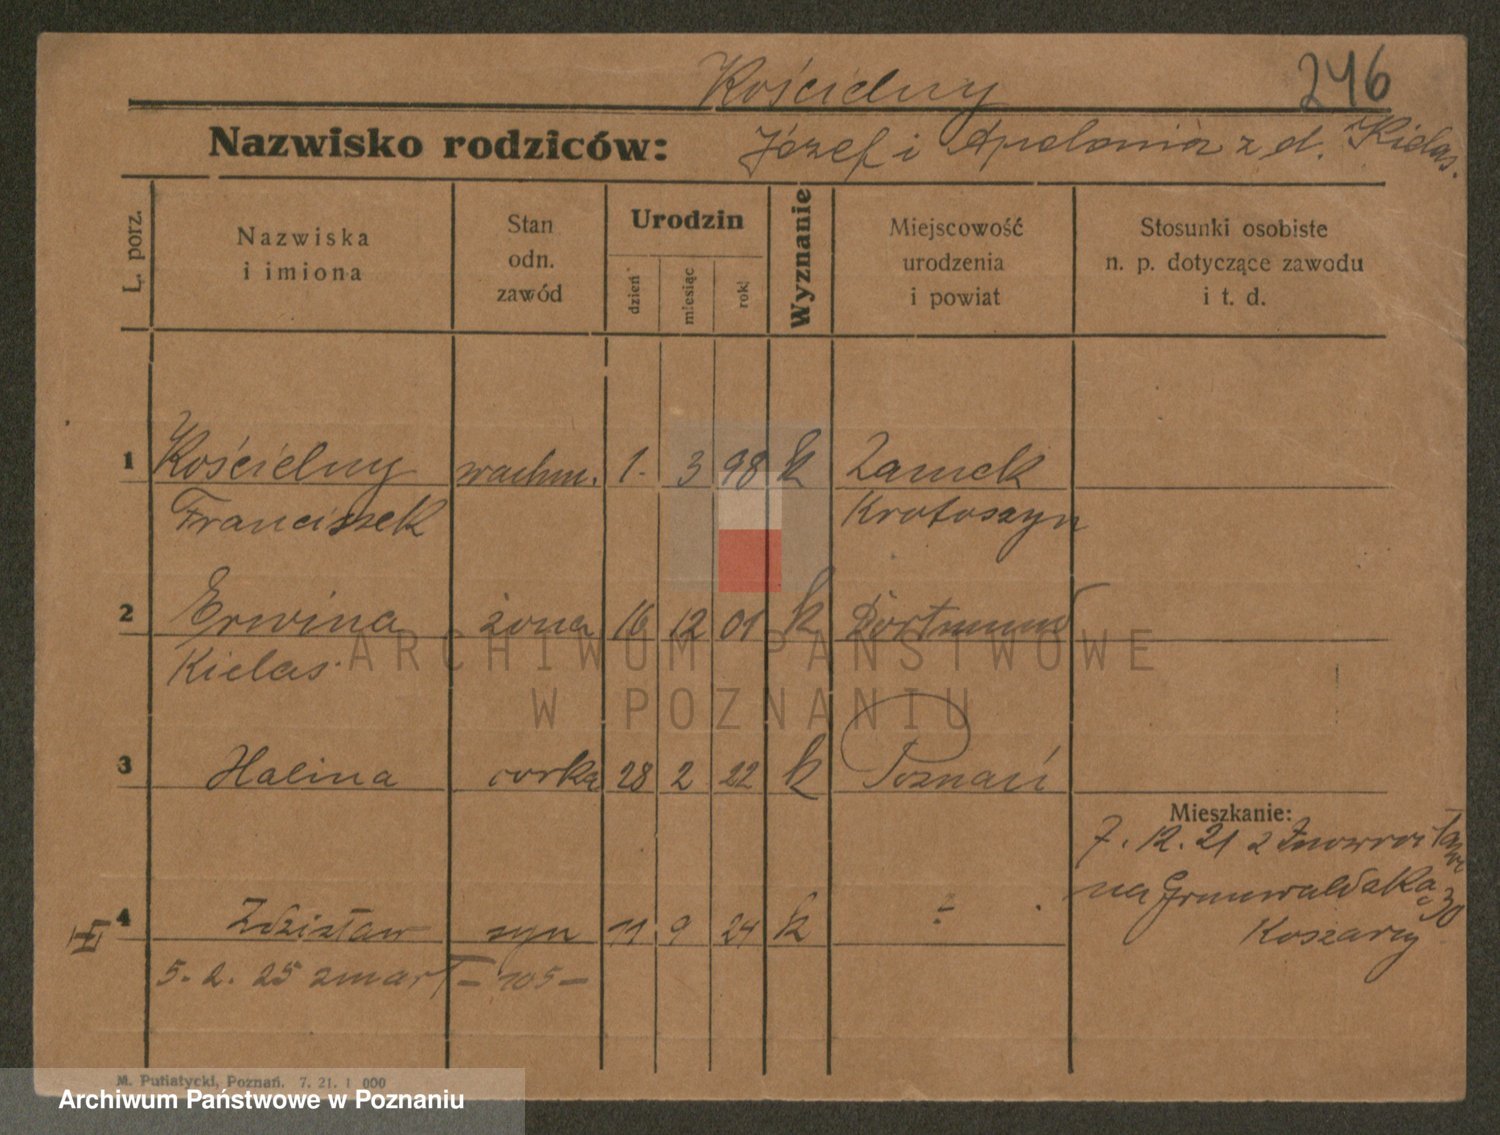 Kościelny
246
Nazwisko rodziców: Józef i Apolonia z d. Kielas.
L. porz.
Nazwiska i imiona
Stan odn. zawód
Urodzin
dzień
miesiąc
rok
Wyznanie
Miejscowość urodzenia i powiat
Stosunki osobiste n. p. dotyczące zawodu i t. d.
1 Kościelny wachm. 1. 3 98 k Zamek
Franciszek Krotoszyn
2 Erwina żona 16 12 01 k Dortmund
Kielas
3 Halina corka 28 2 22 k Poznań
Mieszkanie:
7. 12. 21 z Inowrocław
na Grunwaldska 30
Koszary
4 Zdzisław syn 11 9 24 k
5. 2. 25 zmarł - 105 -
M. Putiatycki, Poznań. 7. 21. 1 000
ARCHIWUM PAŃSTWOWE
W POZNANIU
Archiwum Państwowe w Poznaniu